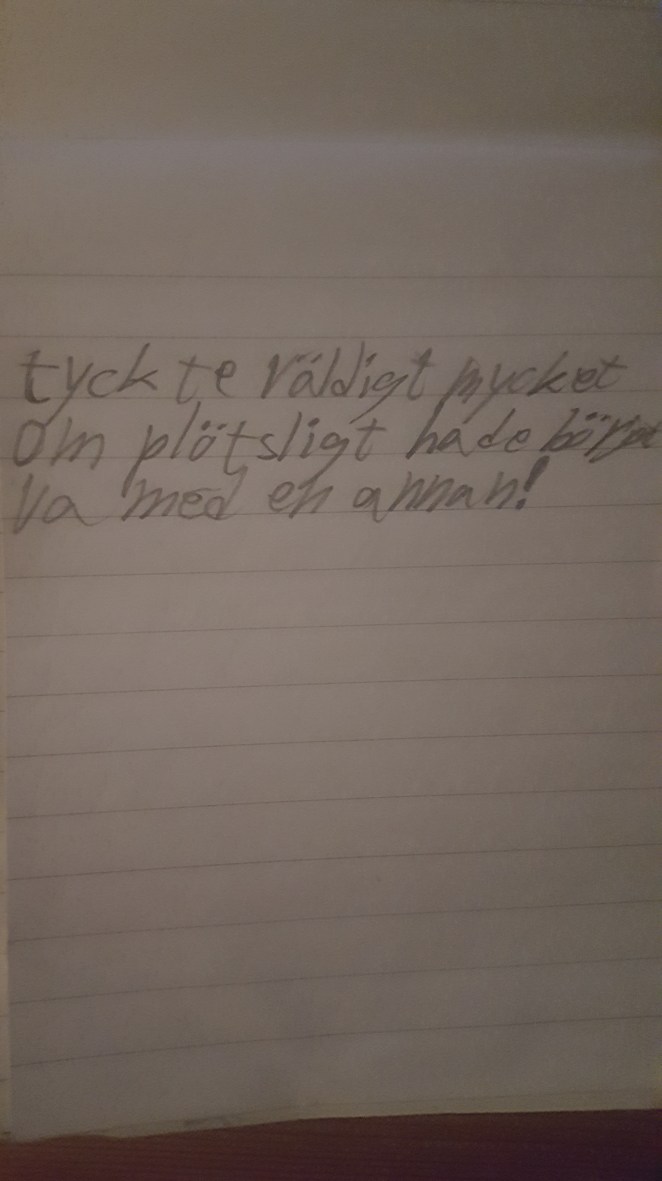 tyckte väldigt mycket
om plötsligt hade börjat
va med en annan!